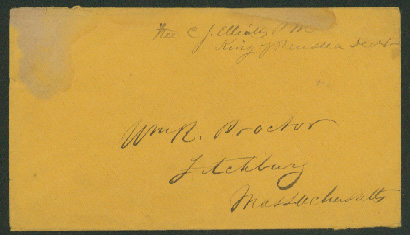 Free C. J. Elliott P.M.
King of Prussia
Wm R. Proctor
Fitchburg
Massachusetts